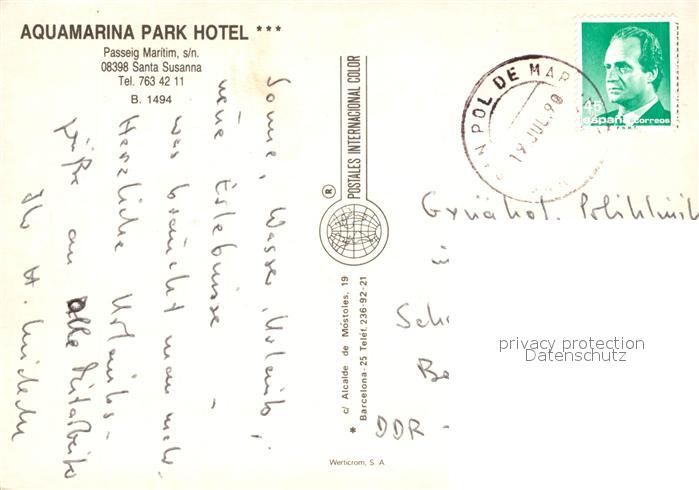 AQUAMARINA PARK HOTEL ***
Passeig Marítim, s/n.
08398 Santa Susanna
Tel. 763 42 11
B. 1494
Sonne, Wasser, Urlaub,
neue Erlebnisse –
was braucht man mehr.
Herzliche Urlaubs-
grüße an alle Mitarbeiter
Ihr H.
® POSTALES INTERNACIONAL COLOR
* c/ Alcalde de Móstoles, 19
Barcelona-25 Teléf. 236-92-21
Werticrom, S. A.
SAN POL DE MAR
19 JUL. 90
45
españa correos
Gynäkol. Poliklinik
Sch
DDR -
privacy protection
Datenschutz